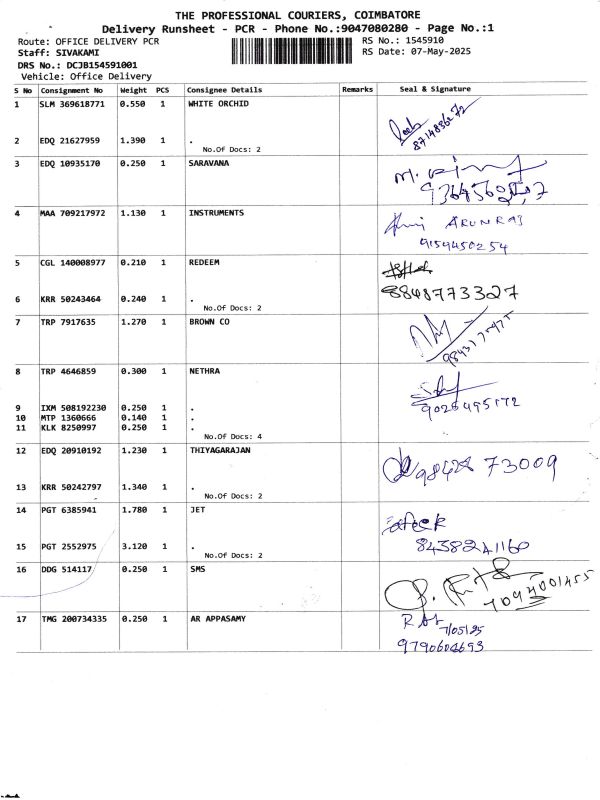 THE PROFESSIONAL COURIERS, COIMBATORE
Delivery Runsheet - PCR - Phone No.:9047080280 - Page No.:1
Route: OFFICE DELIVERY PCR
RS No.: 1545910
Staff: SIVAKAMI
RS Date: 07-May-2025
DRS No.: DCJB154591001
Vehicle: Office Delivery
S No Consignment No Weight PCS Consignee Details Remarks Seal & Signature
1 SLM 369618771 0.550 1 WHITE ORCHID
8714836272
2 EDQ 21627959 1.390 1 .
No.Of Docs: 2
3 EDQ 10935170 0.250 1 SARAVANA
4 MAA 709217972 1.130 1 INSTRUMENTS
ARUNRAJ
9159450254
5 CGL 140008977 0.210 1 REDEEM
6 KRR 50243464 0.240 1 .
8848773327
No.Of Docs: 2
7 TRP 7917635 1.270 1 BROWN CO
8 TRP 4646859 0.300 1 NETHRA
9 IXM 508192230 0.250 1 .
10 MTP 1360666 0.140 1 .
11 KLK 8250997 0.250 1 .
No.Of Docs: 4
12 EDQ 20910192 1.230 1 THIYAGARAJAN
73009
13 KRR 50242797 1.340 1 .
No.Of Docs: 2
14 PGT 6385941 1.780 1 JET
15 PGT 2552975 3.120 1 .
8438241160
No.Of Docs: 2
16 DDG 514117 0.250 1 SMS
7094001455
17 TMG 200734335 0.250 1 AR APPASAMY
7/05/25
9790604693